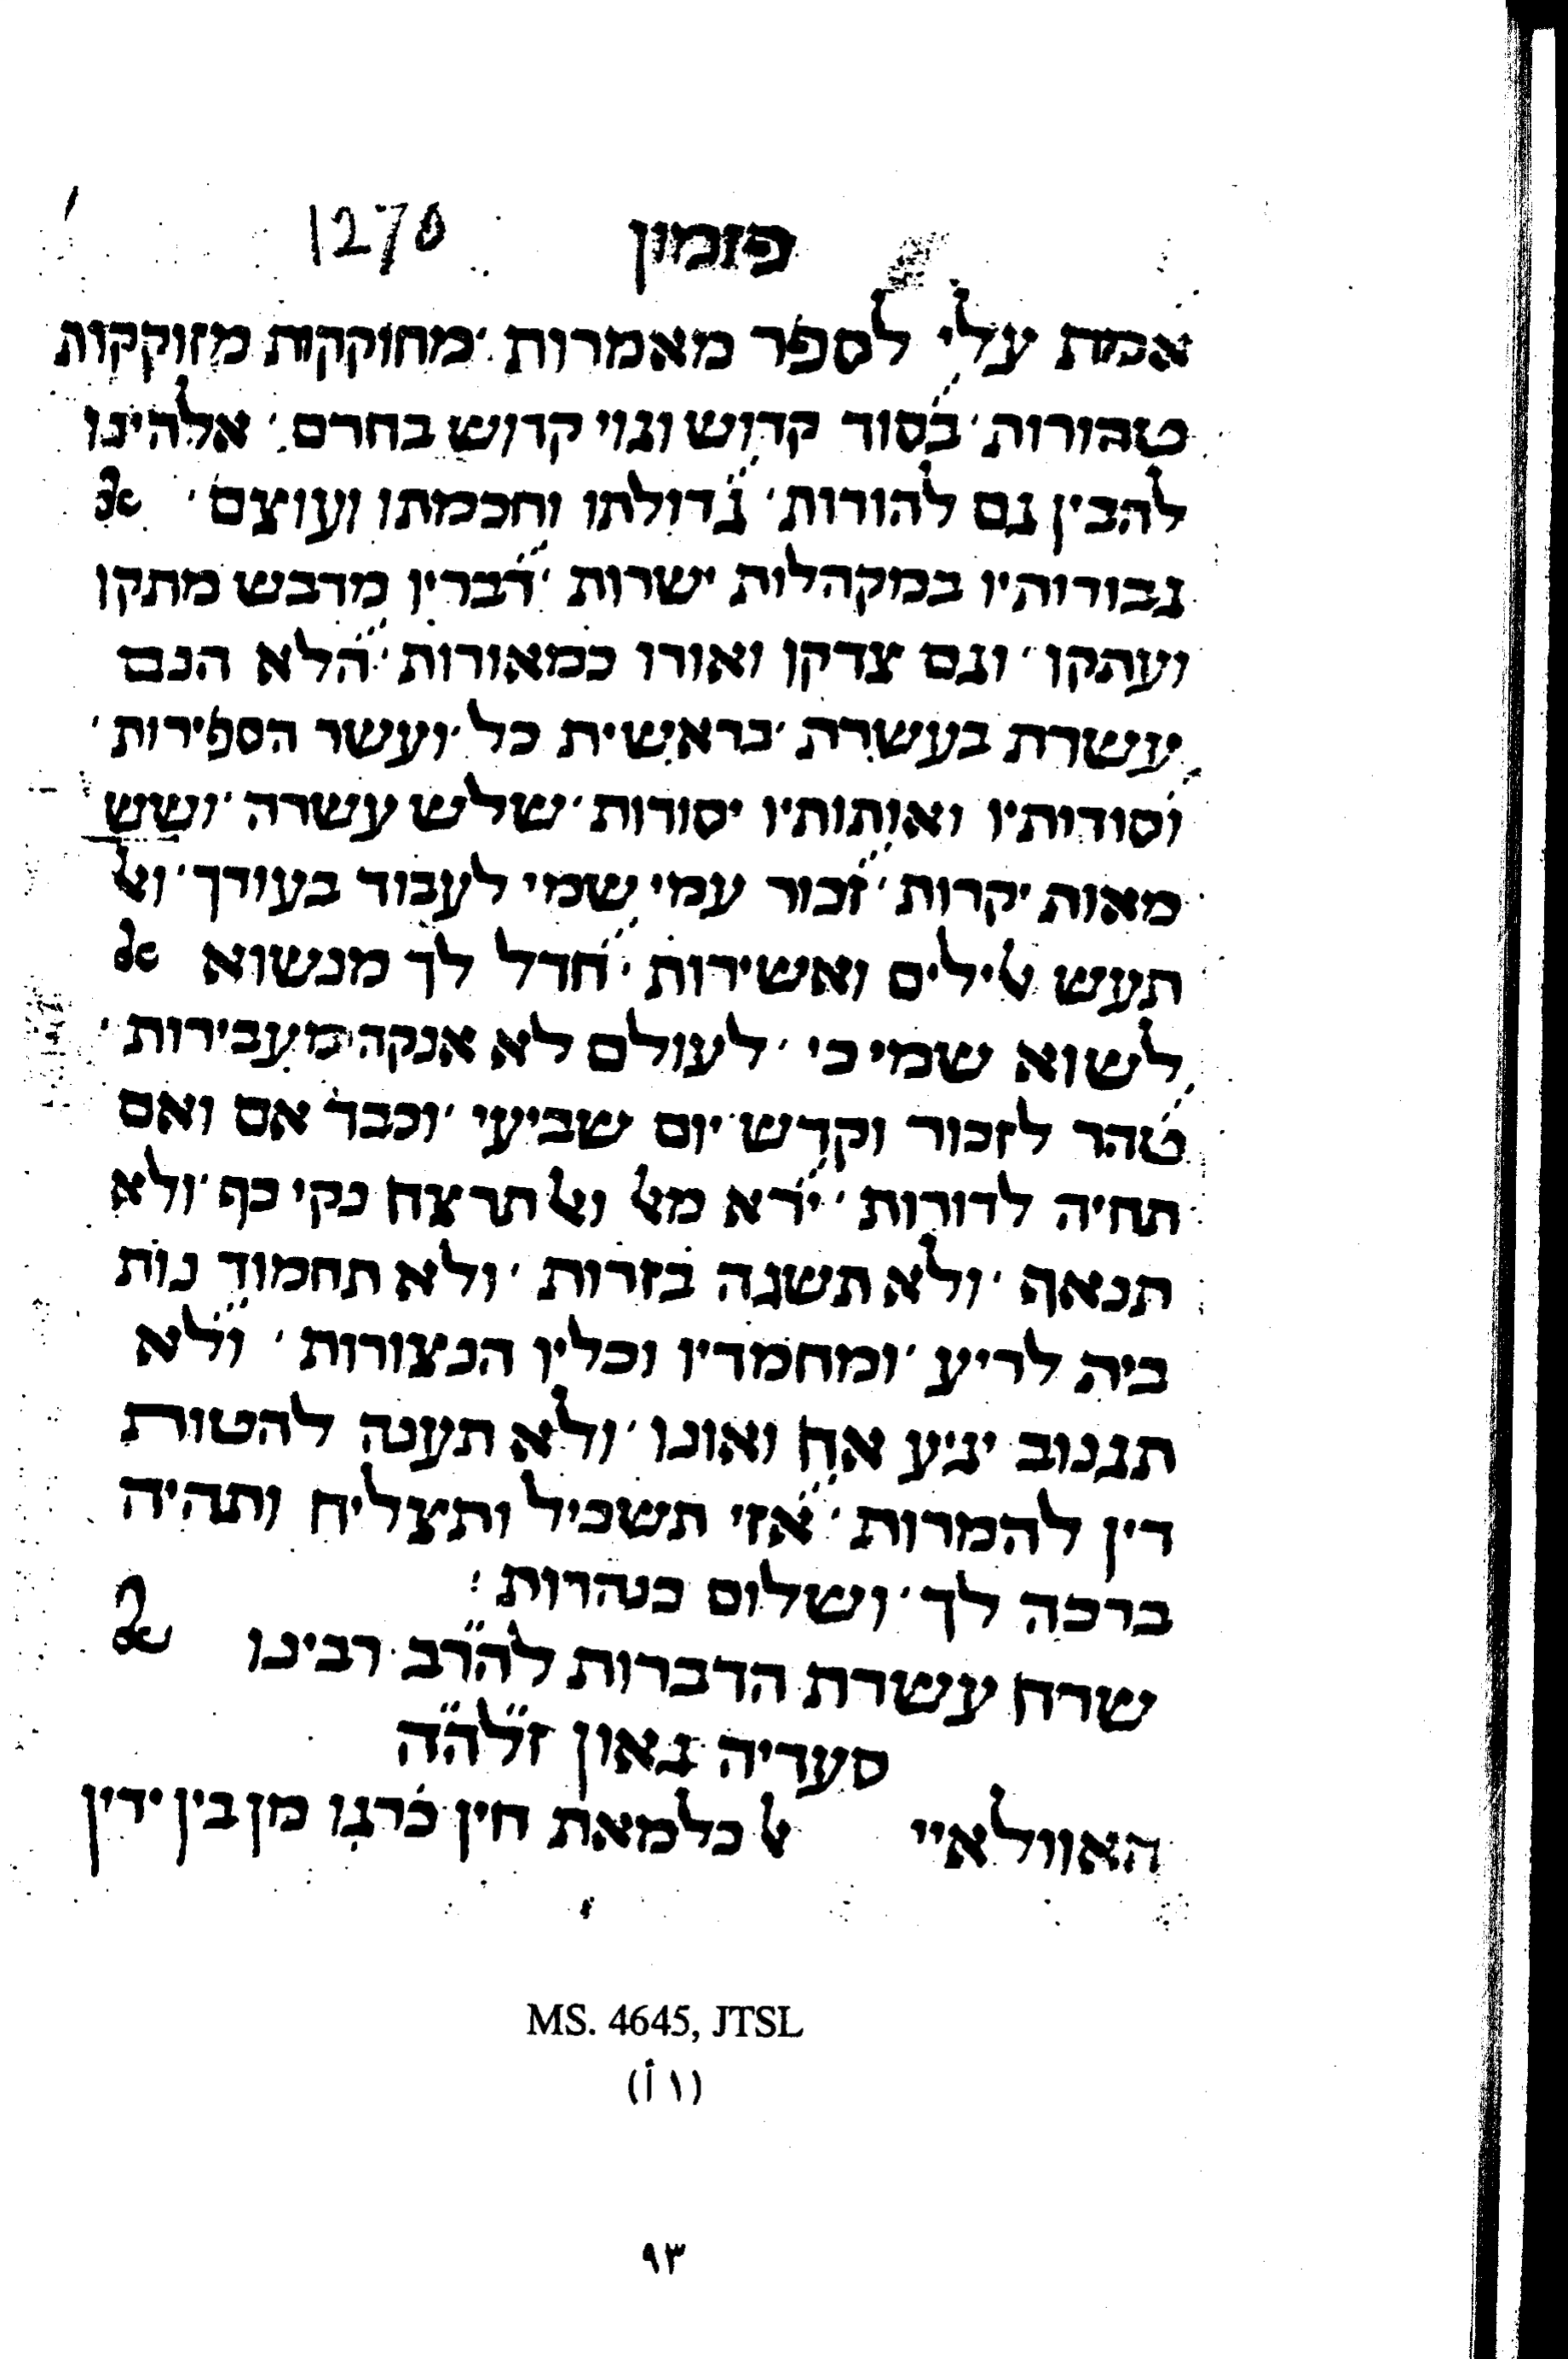 1270 פזמון
אמת עלי לספר מאמרות ׳מחוקקות מזוקקות
טהורות׳ בסוד קדוש ונוי קדוש בחרם׳ אלהינו
להבין גם להורות׳ גדולתו וחכמתו ועוצם׳ אל
גבורותיו במקהלות ישרות ׳דברין מדבש מתקן
ועתקן׳ וגם צדקן ואורו כמאורות׳ הלא הנם
עשרת בעשרת ׳בראשית כל ׳ועשר הספירות׳
וסודותיו ואותותיו יסודות׳ שלש עשרה ׳ושש
מאות יקרות׳ זכור עמי שמי לעבוד בעודך׳ ואל
תעש אלילים ואשירות׳ חדל לך מנשוא אל
לשוא שמי כי ׳לעולם לא אנקה מעבירות׳
טהר לזכור וקדש יום שביעי ׳וכבד אם ואם
תחיה לדורות׳ ירא מאל ואל תרצח נקי כף ׳ולא
תנאף ׳ולא תשגה בזרות ׳ולא תחמוד נות
בית לריע ׳ומחמדיו וכליו הנצורות׳ ולא
תגנוב יגיע אח ואונו ׳ולא תענה להטות
דין להמרות׳ אזי תשכיל ותצליח ותהיה
ברכה לך ׳ושלום כנהרות׃
שרח עשרת הדברות להרב רבינו
סעדיה גאון ז״ל ה״ה
האוולאיי אלכלמאת חין כרגו מן בין ידין
MS. 4645, JTSL
(١ أ)
٩٣